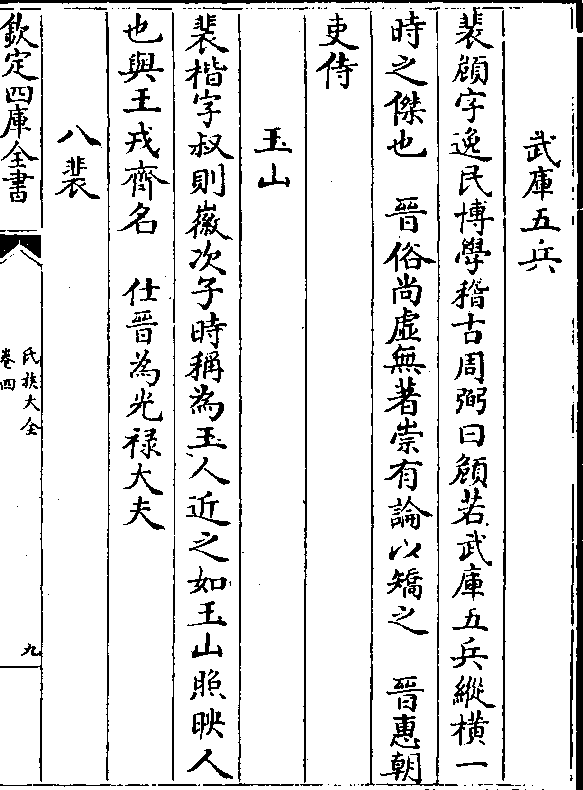 武庫五兵
裴頠字逸民博學稽古周弼曰頠若武庫五兵縱橫一
時之傑也　晉俗尚虛無著崇有論以矯之　晉惠朝
吏侍
玉山
裴楷字叔則徽次子時稱為玉人近之如玉山照映人
也與王戎齊名　仕晉為光禄大夫
八裴
欽定四庫全書
氏族大全
卷四
九